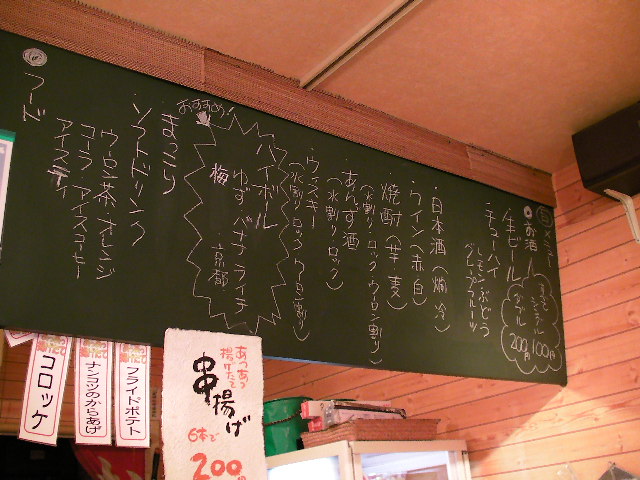 メニュー
お酒
生ビール
チューハイ
レモン ぶどう
グレープフルーツ
シングル 100円
ダブル 200円
日本酒(燗 冷)
ワイン(赤 白)
焼酎(芋 麦)
(水割り・ロック ウーロン割り)
あんず酒
(水割り・ロック)
ウィスキー
(水割り ロック ウーロン割り)
おすすめ!
ハイボール
ゆず バナナ ライチ
梅 京都
まっこり
ソフトドリンク
ウーロン茶 オレンジ
コーラ アイスコーヒー
アイスティ
フード
コロッケ
ナンコツのからあげ
フライドポテト
あつあつ
揚げたて
串揚げ
6本で
200円